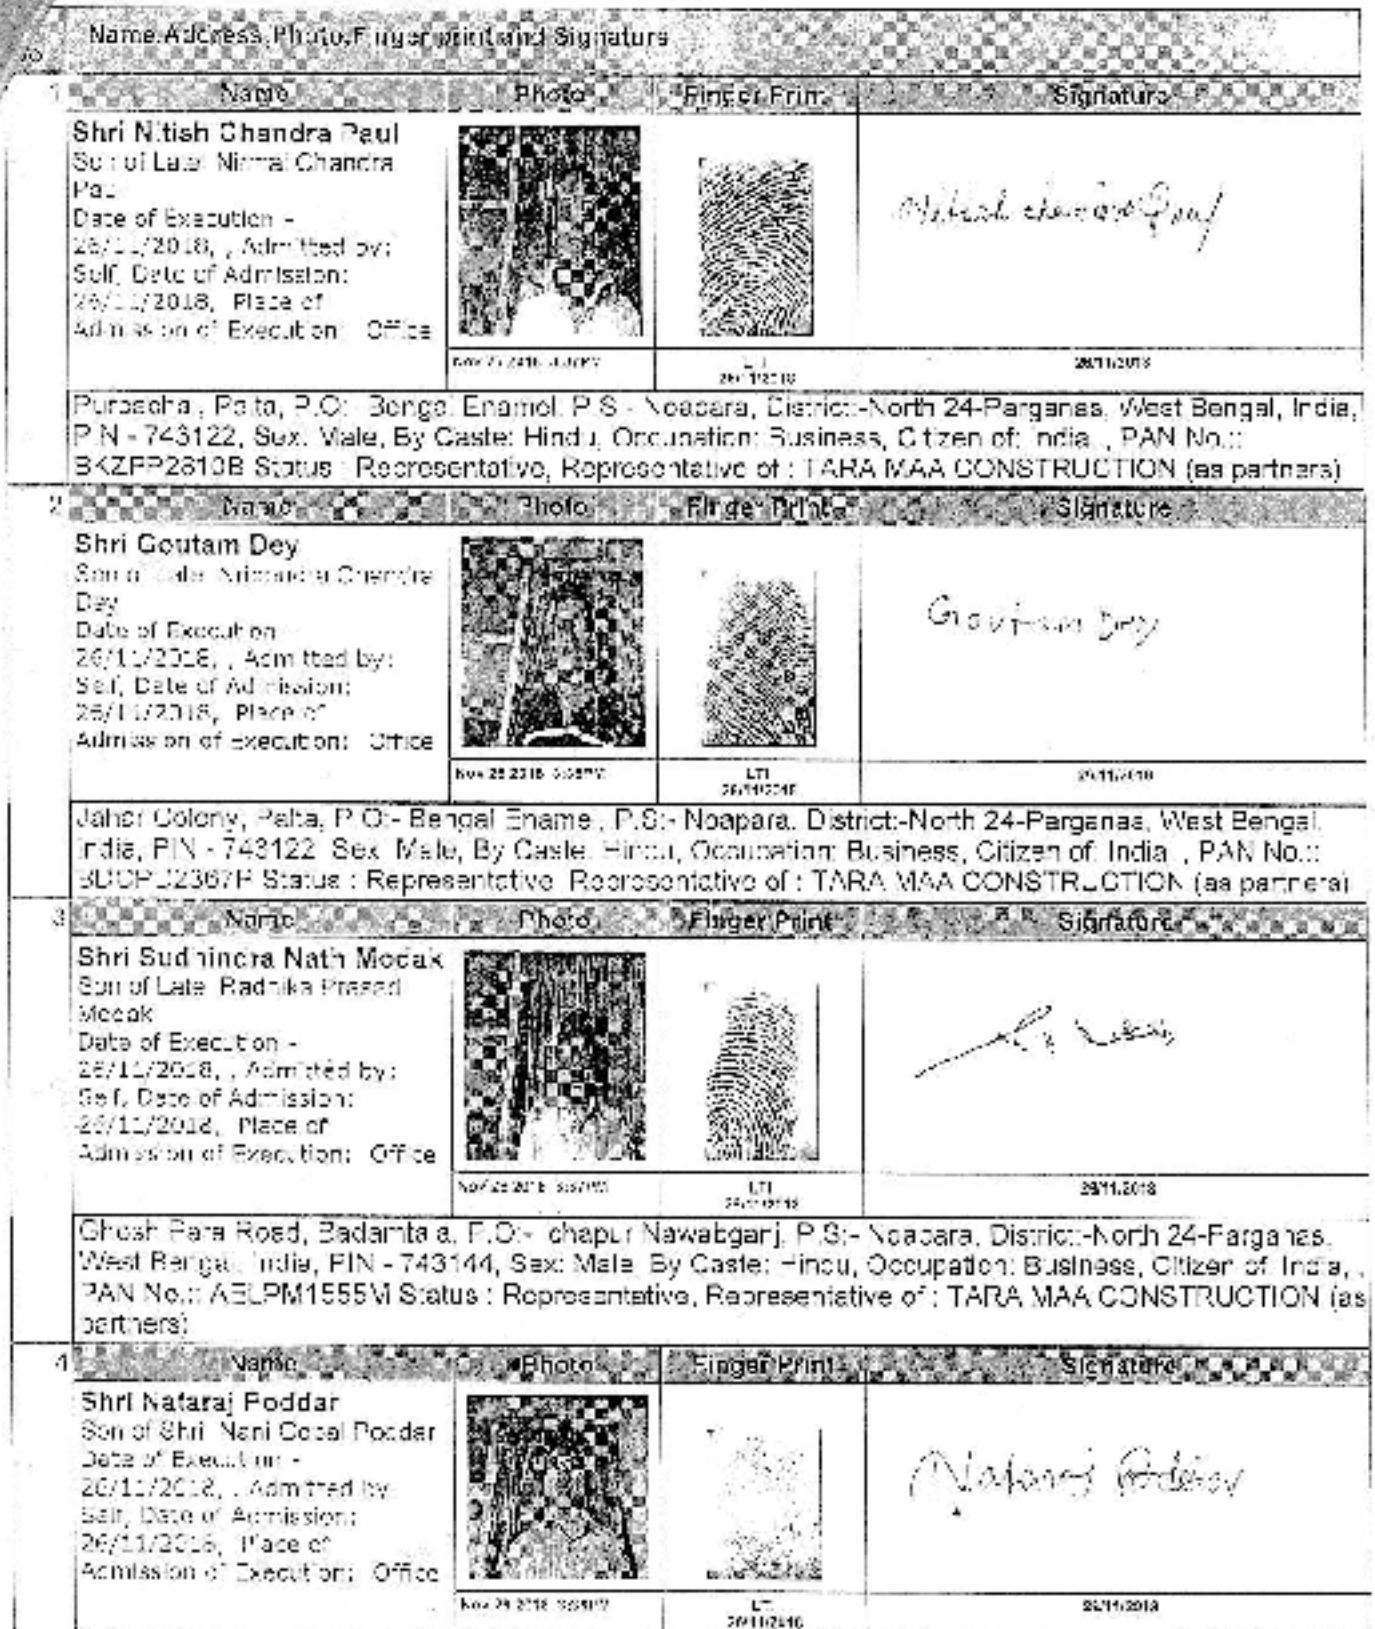 Name,Address,Photo,Finger print and Signature
1 Name Photo Finger Print Signature
Shri Nitish Chandra Paul
Son of Late Nirmal Chandra
Paul
Date of Execution -
26/11/2018, , Admitted by:
Self, Date of Admission:
26/11/2018, Place of
Admission of Execution: Office
Nitish Chandra Paul
LTI
26/11/2018
26/11/2018
Palta, P.O:- Bengal Enamel, P.S:- Noapara, District:-North 24-Parganas, West Bengal, India,
PIN - 743122, Sex: Male, By Caste: Hindu, Occupation: Business, Citizen of: India, , PAN No.::
Status : Representative, Representative of : TARA MAA CONSTRUCTION (as partners)
2 Name Photo Finger Print Signature
Shri Goutam Dey
Son of Late Chandra
Dey
Date of Execution -
26/11/2018, , Admitted by:
Self, Date of Admission:
26/11/2018, Place of
Admission of Execution: Office
Goutam Dey
Nov 26 2018
LTI
26/11/2018
26/11/2018
Jahar Colony, Palta, P.O:- Bengal Enamel, P.S:- Noapara, District:-North 24-Parganas, West Bengal,
India, PIN - 743122, Sex: Male, By Caste: Hindu, Occupation: Business, Citizen of: India, , PAN No.::
Status : Representative, Representative of : TARA MAA CONSTRUCTION (as partners)
3 Name Photo Finger Print Signature
Shri Sudhindra Nath Modak
Son of Late Radhika Prasad
Modak
Date of Execution -
26/11/2018, , Admitted by:
Self, Date of Admission:
26/11/2018, Place of
Admission of Execution: Office
Nov 26 2018
LTI
26/11/2018
26/11/2018
Ghosh Para Road, Badamtala, P.O:- Ichapur Nawabganj, P.S:- Noapara, District:-North 24-Parganas,
West Bengal, India, PIN - 743144, Sex: Male, By Caste: Hindu, Occupation: Business, Citizen of: India, ,
PAN No.:: AELPM1555M Status : Representative, Representative of : TARA MAA CONSTRUCTION (as
partners)
4 Name Photo Finger Print Signature
Shri Nataraj Poddar
Son of Shri Nani Gopal Poddar
Date of Execution -
26/11/2018, , Admitted by:
Self, Date of Admission:
26/11/2018, Place of
Admission of Execution: Office
Nataraj Poddar
Nov 26 2018
LTI
26/11/2018
26/11/2018